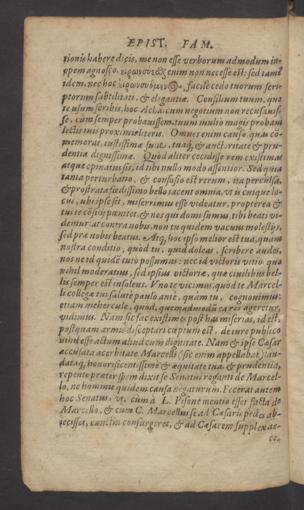 EPIST. FAM.
tionis habere dicis, me non esse verborum admodum in-
opem agnosco.
enim non necesse est: sed tamē
idem, nec hoc
facile cedo tuorum scri-
ptorum subtilitati, & elegantiæ. Consilium tuum, quo
te usum scribis, hoc Achaicum negotium non recusauis-
se, cum semper probauissem, tum multo magis probaui
lectis tuis proximis literis. Omnes enim causæ, quas cō-
memoras, iustissimæ sunt, tuaq́; & auctoritate & pru-
dentia dignissimæ. Quod aliter cecidisse rem existimas
atque opinatus sis, id tibi nullo modo assentior. Sed quia
tanta perturbatio, & confusio est rerum, ita perculsa,
& prostrata fœdissimo bello iacent omnia, vt is cuique lo-
cus, vbi ipse sit, miserrimus esse videatur, propterea &
tui te cōsilij pœnitet, & nos qui domi sumus, tibi beati vi-
demur: at contra nobis, non tu quidem vacuus molestijs,
sed præ nobis beatus. Atq́; hoc ipso melior est tua, quàm
nostra conditio, quòd tu, quid doleas, scribere audes,
nos ne id quidē tutò possumus: nec id victoris vitio quo
nihil moderatius, sed ipsius victoriæ, quæ ciuilibus bel-
lis semper est insolens. Vno te vicimus, quòd de Marcel-
li collegæ tui salute paulo antè, quàm tu, cognouimus:
etiam mehercule, quod, quemadmodū ea res ageretur,
vidimus. Nam sic fac existimes: post has miserias, id est,
postquam armis disceptari cœptum est de iure publico
nihil esse actum aliud cum dignitate. Nam & ipse Cæsar
accusata acerbitate Marcelli (sic enim appellabat) lau-
dataq́; honorificentissimè & æquitate tua, & prudentia,
repentè præter spem dixit se Senatui roganti de Marcel-
lo, ne hominis quidem causa negaturum. Fecerat autem
hoc Senatus, vt, cum à L. Pisone mentio esset facta de
Marcello, & cum C. Marcellus se ad Cæsaris pedes ab-
iecisset, cunctus consurgeret, & ad Cæsarem supplex ac-